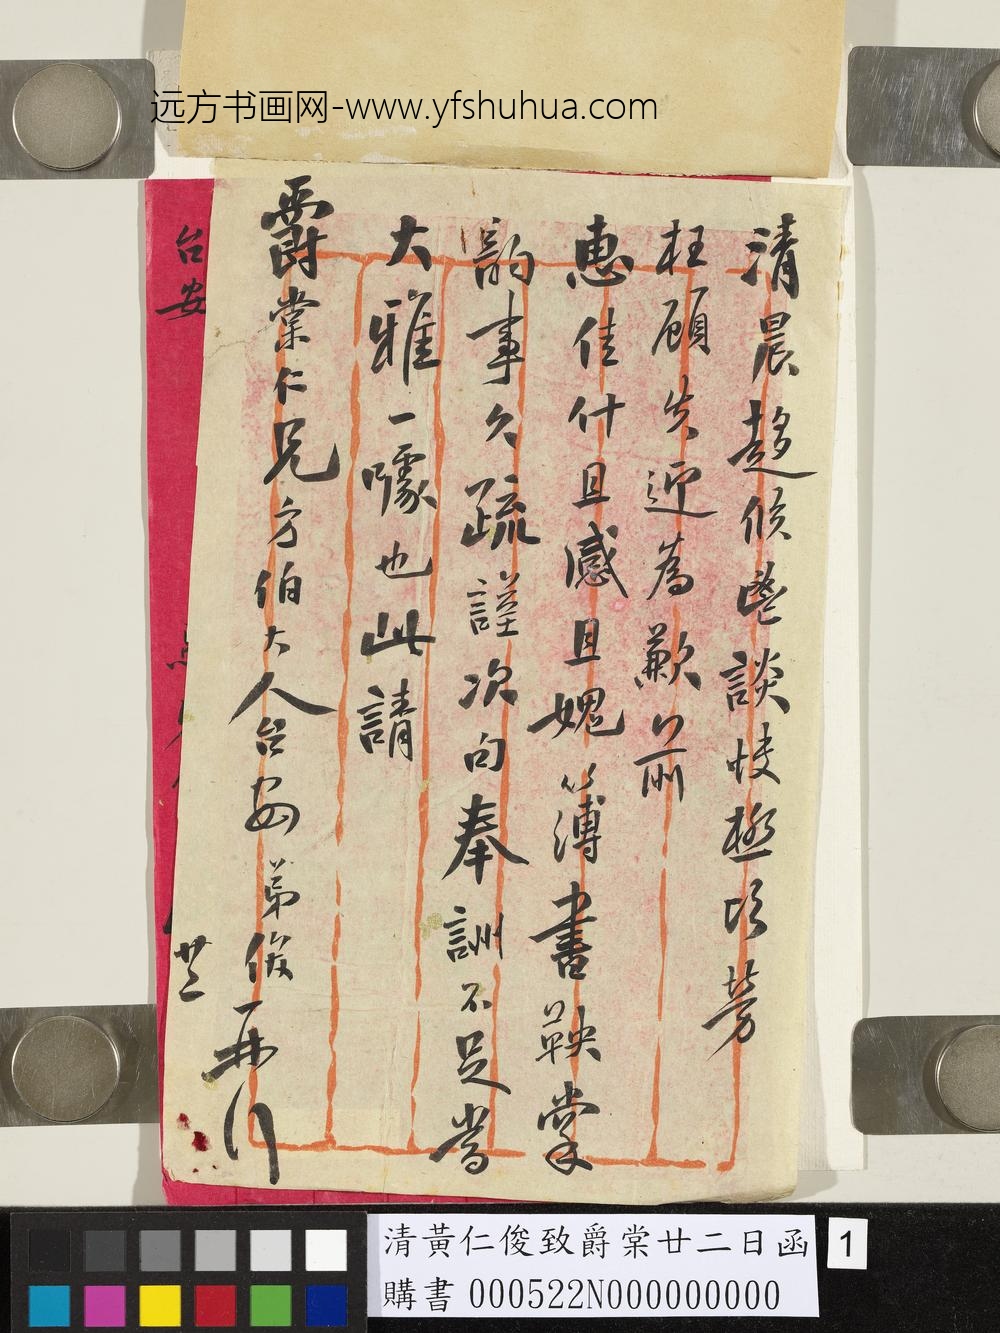 远方书画网-www.yfshuhua.com
清晨趨候鬯談快極頃勞
枉顧失迎為歉前
惠佳什且感且媿簿書鞅掌
韵事久疏謹次句奉詶不足當
大雅一噱也此請
爵棠仁兄方伯大人台安弟俊再行
廿二
台安
清黃仁俊致爵棠廿二日函
購書 000522N000000000
1